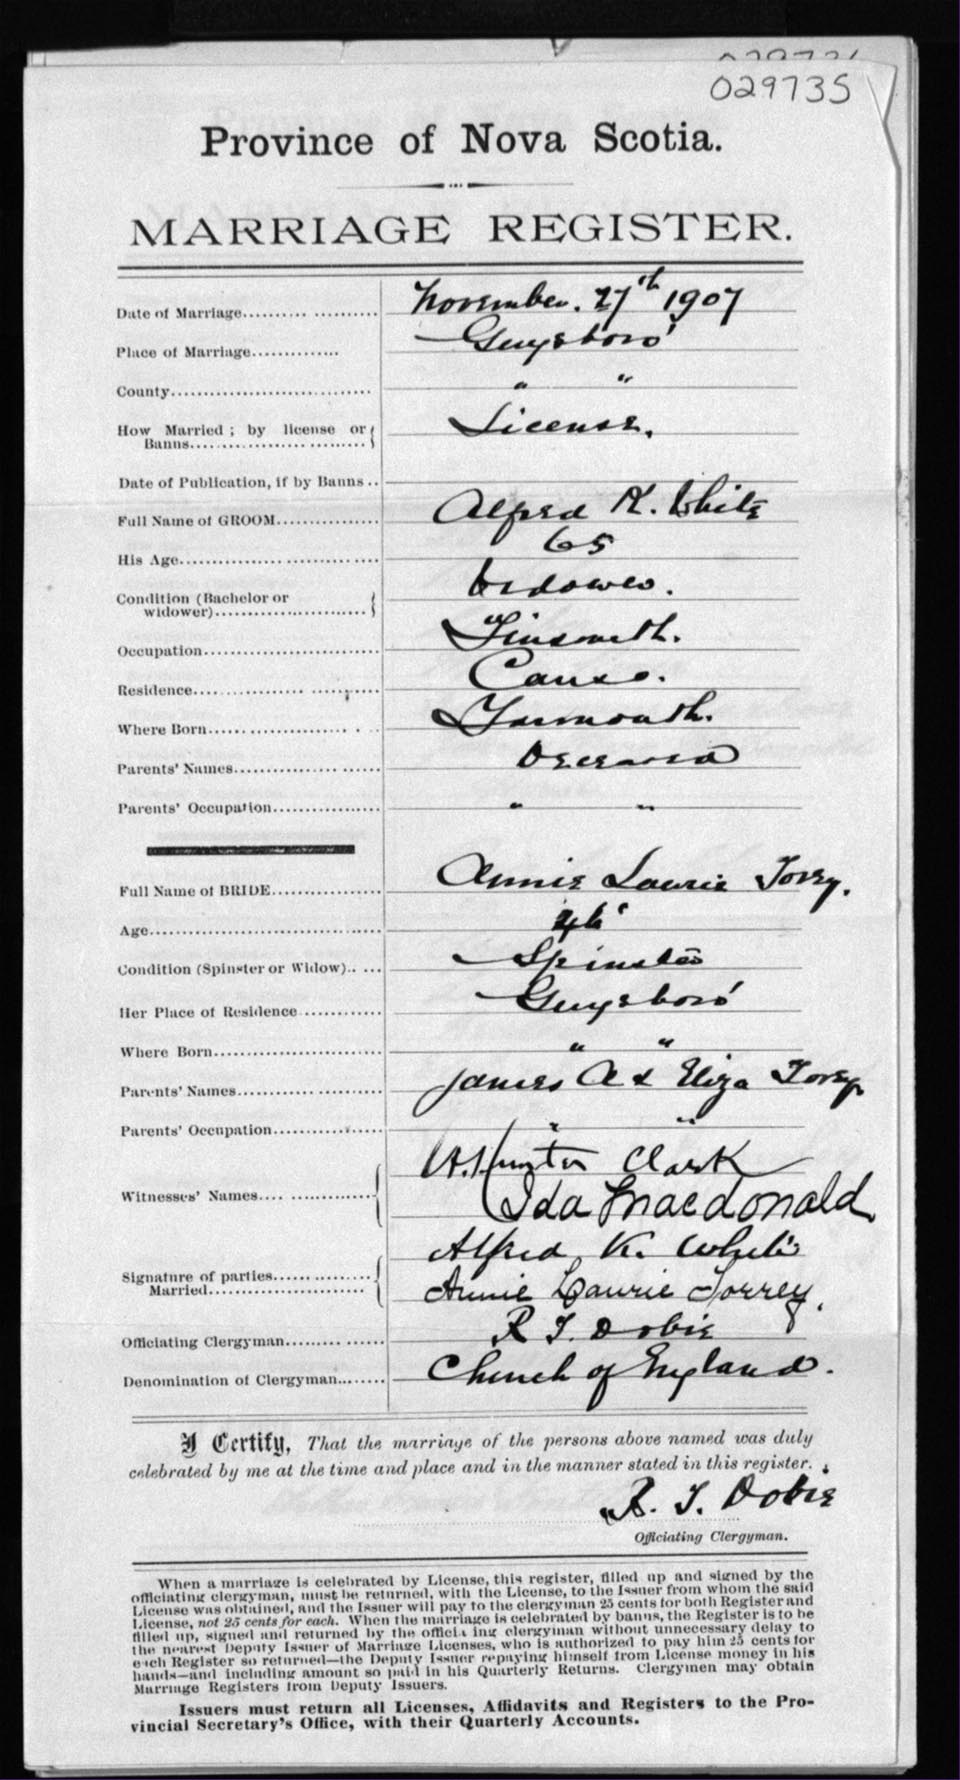 029735
Province of Nova Scotia.
MARRIAGE REGISTER.
Date of Marriage.......... November. 27th 1907
Place of Marriage.............. Guysboro'
County.............................. " "
How Married ; by license or License.
Banns..............................
Date of Publication, if by Banns ..
Full Name of GROOM............... Alfred K. White
His Age.............................. 65
Condition (Bachelor or Widower.
widower)..........................
Occupation.......................... Tinsmith.
Residence.......................... Canso.
Where Born.......................... Yarmouth.
Parents' Names..................... Deceased
Parents' Occupation................ " "
Full Name of BRIDE................ Annie Laurie Torey.
Age.................................. 46
Condition (Spinster or Widow)...... Spinster
Her Place of Residence ............ Guysboro'
Where Born.......................... " "
Parents' Names..................... James A & Eliza Torey
Parents' Occupation................ " "
Witnesses' Names.... .............. Hunter Clark
Ida Macdonald
Signature of parties............... Alfred K. White
Married.......................... Annie Laurie Torrey.
Officiating Clergyman.............. R T. Dobie
Denomination of Clergyman.......... Church of England.
I Certify, That the marriage of the persons above named was duly
celebrated by me at the time and place and in the manner stated in this register.
R. T. Dobie
Officiating Clergyman.
When a marriage is celebrated by License, this register, filled up and signed by the
officiating clergyman, must be returned, with the License, to the Issuer from whom the said
License was obtained, and the Issuer will pay to the clergyman 25 cents for both Register and
License, not 25 cents for each. When the marriage is celebrated by banns, the Register is to be
filled up, signed and returned by the officiating clergyman without unnecessary delay to
the nearest Deputy Issuer of Marriage Licenses, who is authorized to pay him 25 cents for
each Register so returned—the Deputy Issuer repaying himself from License money in his
hands—and including amount so paid in his Quarterly Returns. Clergymen may obtain
Marriage Registers from Deputy Issuers.
Issuers must return all Licenses, Affidavits and Registers to the Pro-
vincial Secretary's Office, with their Quarterly Accounts.